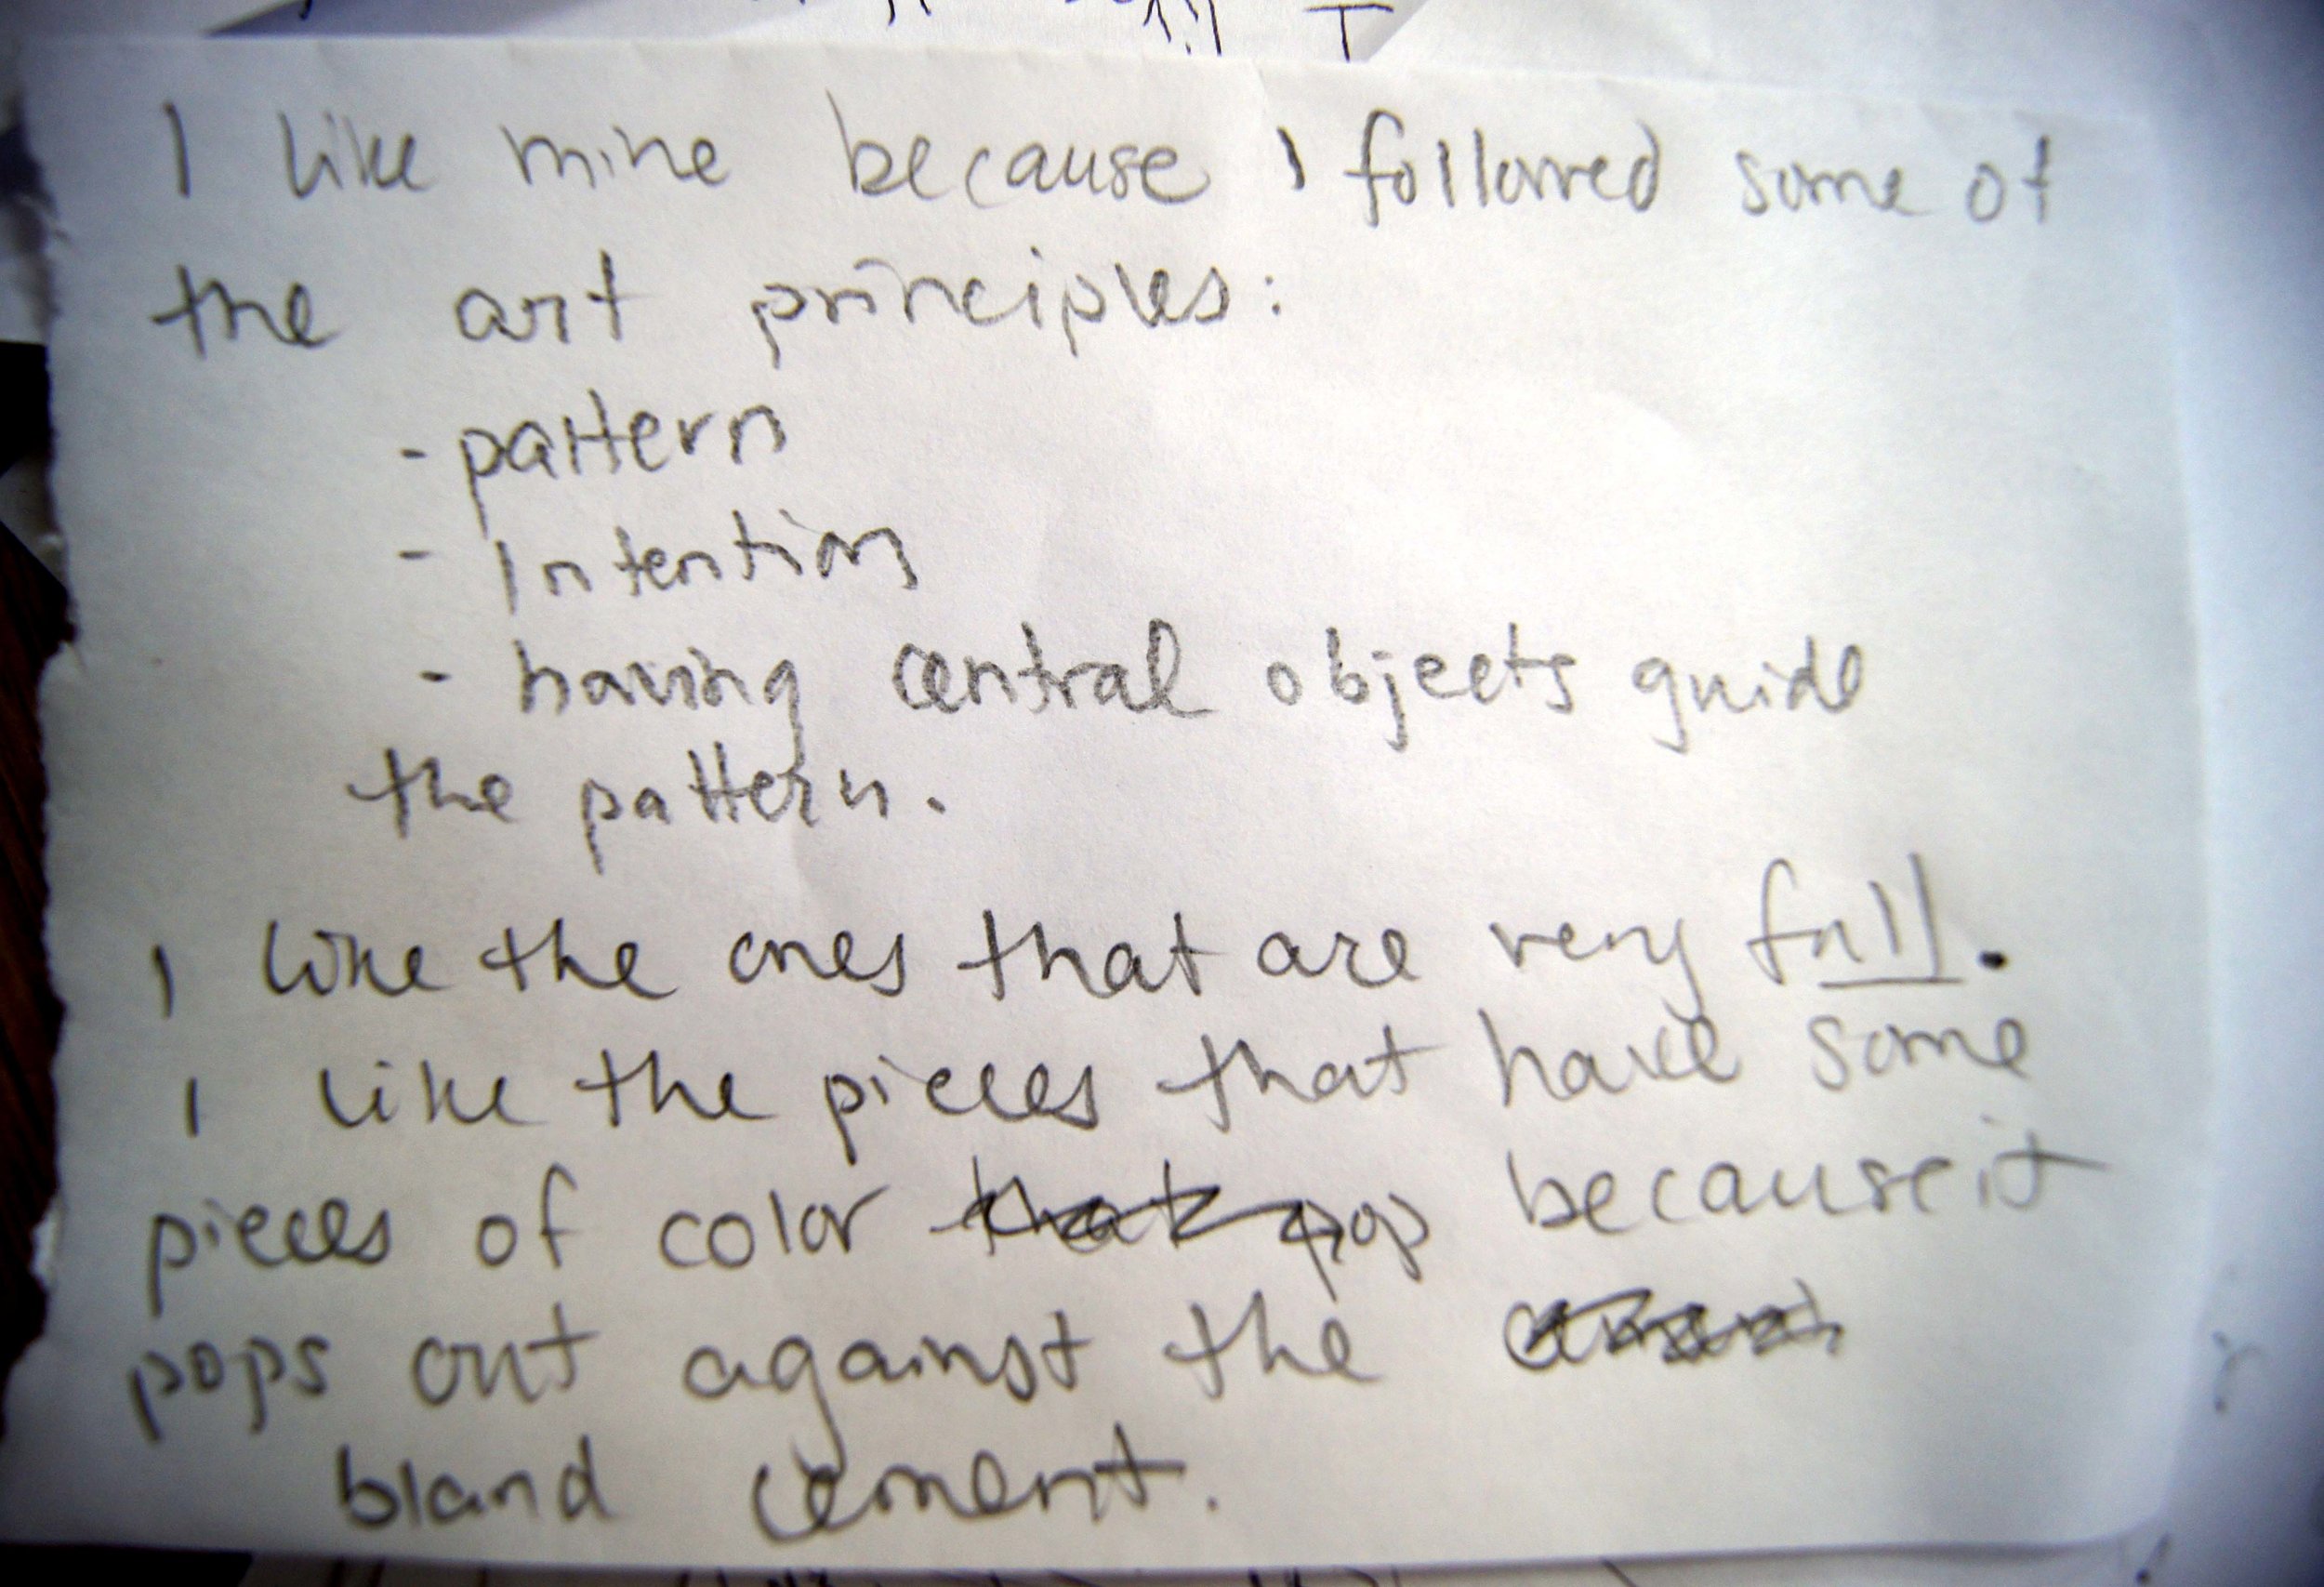 I like mine because I followed some of
the art principles:
- pattern
- Intention
- having central objects guide
the pattern.
I like the ones that are very full.
I like the pieces that have some
pieces of color that pop because it
pops out against the
bland cement.